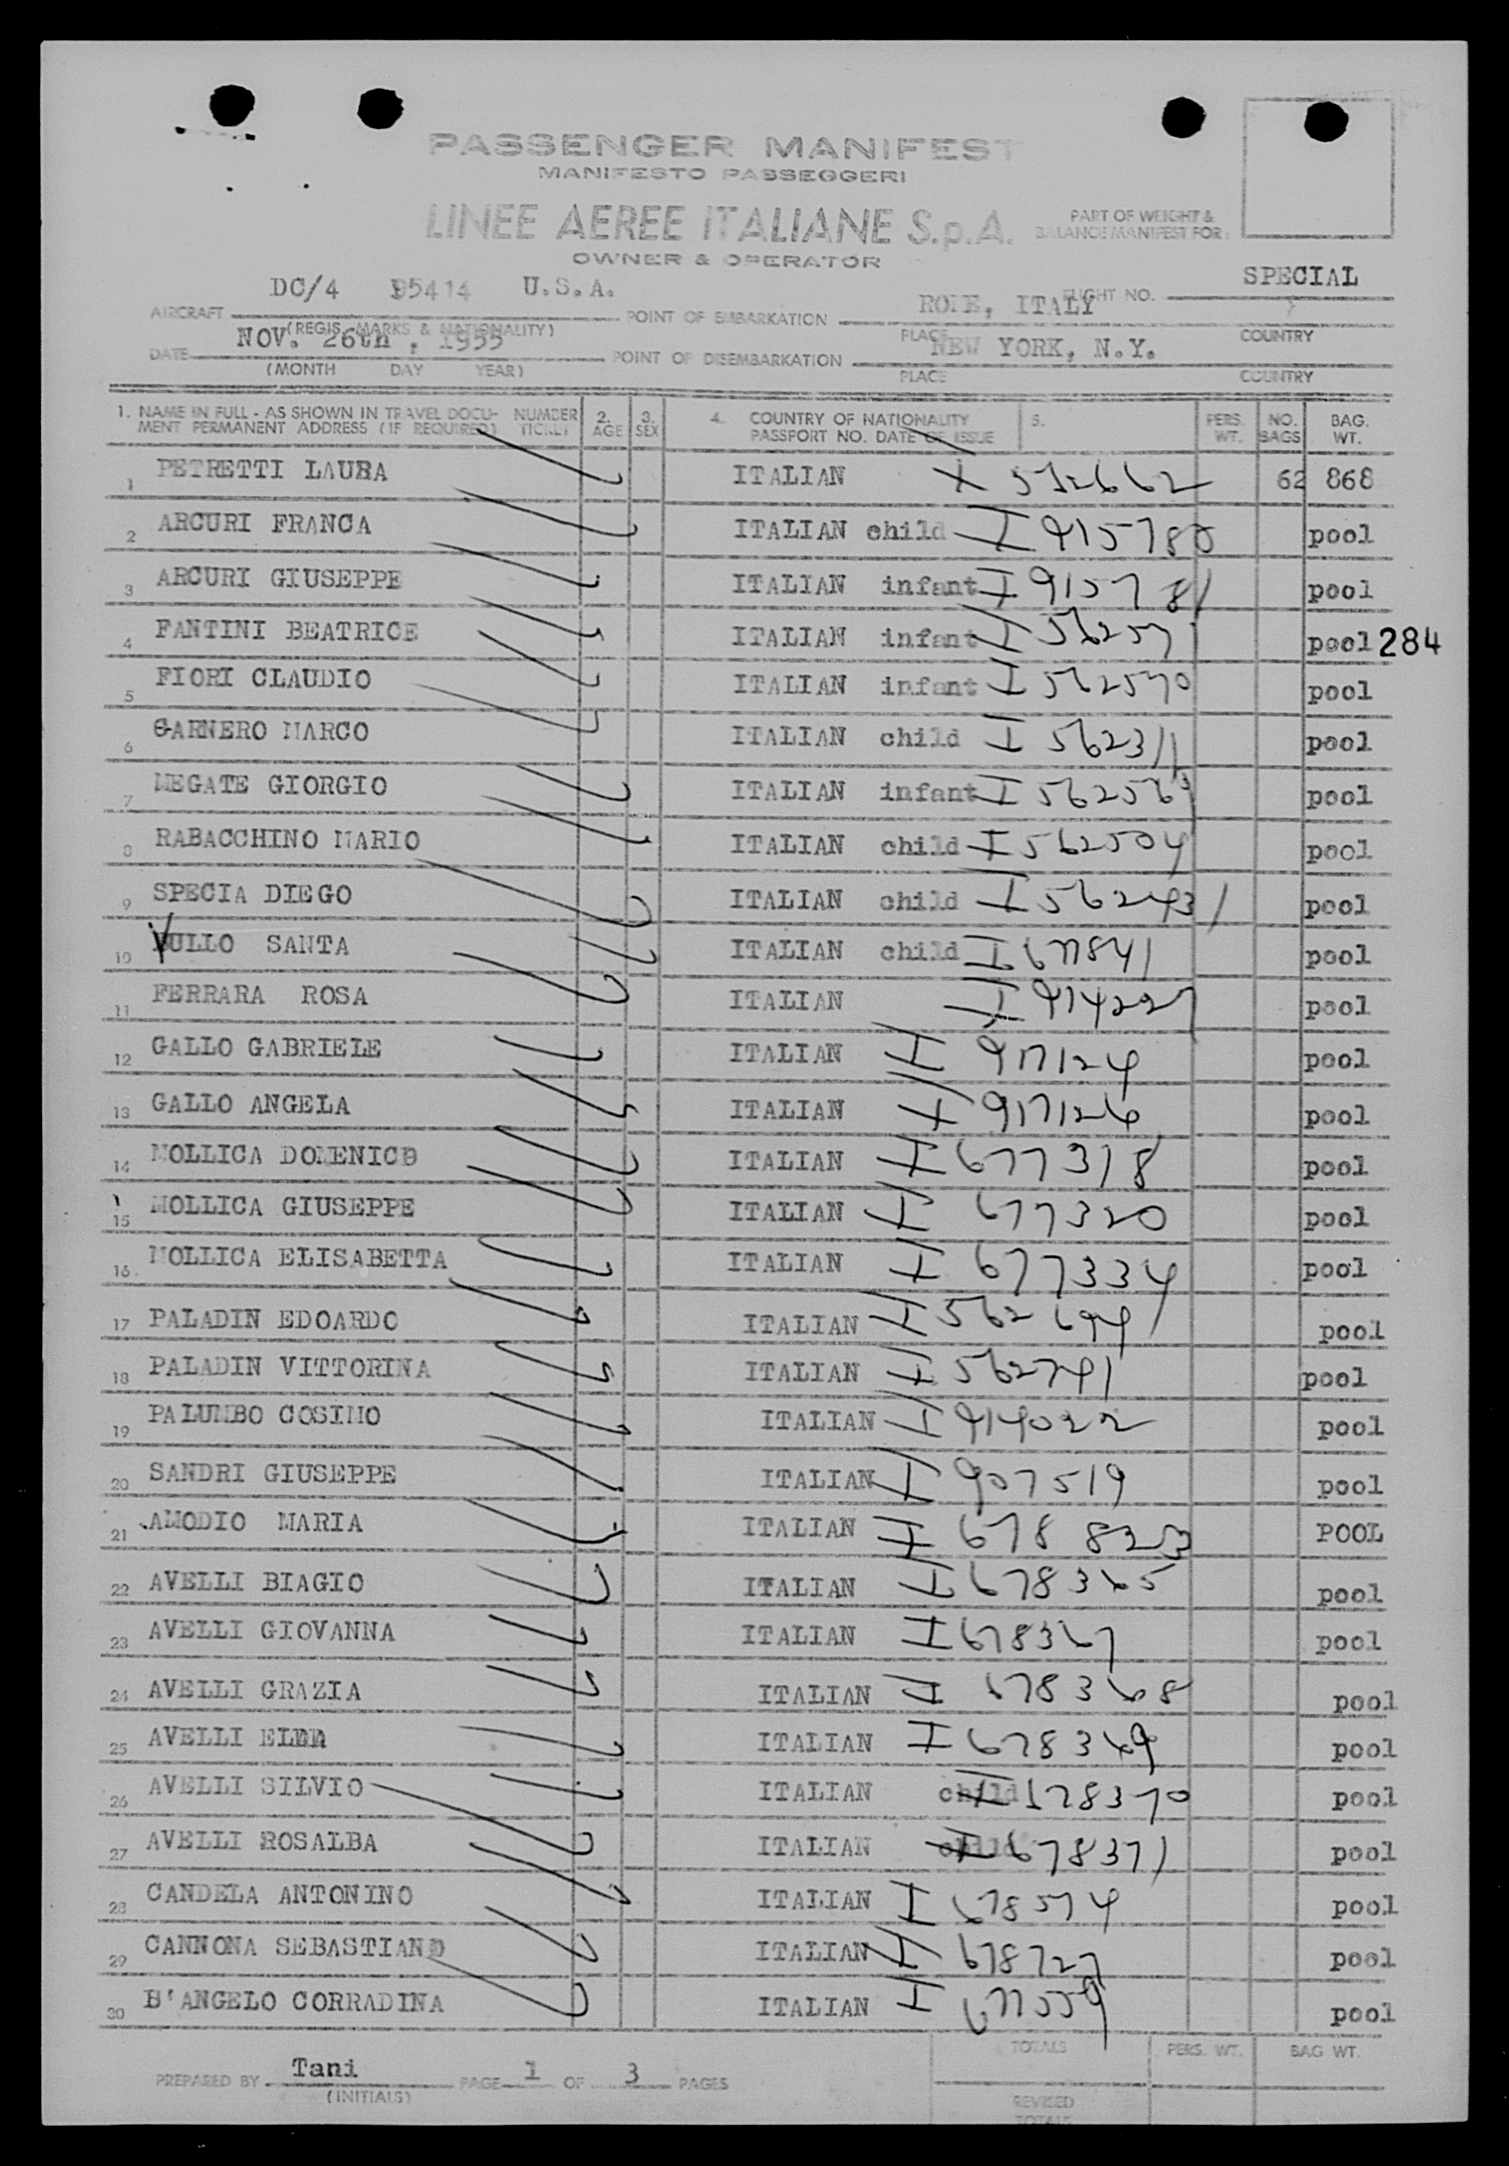 PASSENGER MANIFEST
MANIFESTO PASSEGGERI
LINEE AEREE ITALIANE S.p.A.
PART OF WEIGHT &
BALANCE MANIFEST FOR:
OWNER & OPERATOR
AIRCRAFT DC/4 95414 U.S.A. POINT OF EMBARKATION ROME, ITALY FLIGHT NO. SPECIAL
(REGIS. MARKS & NATIONALITY) PLACE COUNTRY
DATE NOV. 26th, 1955 POINT OF DISEMBARKATION NEW YORK, N.Y.
(MONTH DAY YEAR) PLACE COUNTRY
1. NAME IN FULL - AS SHOWN IN TRAVEL DOCU- NUMBER 2. 3. 4. COUNTRY OF NATIONALITY 5. PERS. NO. BAG.
MENT PERMANENT ADDRESS (IF REQUIRED) TICKET AGE SEX PASSPORT NO. DATE OF ISSUE WT. BAGS WT.
1 PETRETTI LAURA ITALIAN I 532662 62 868
2 ARCURI FRANCA ITALIAN child I 915780 pool
3 ARCURI GIUSEPPE ITALIAN infant I 915781 pool
4 FANTINI BEATRICE ITALIAN infant I 562571 pool 284
5 FIORI CLAUDIO ITALIAN infant I 562570 pool
6 GARNERO MARCO ITALIAN child I 562311 pool
7 MEGATE GIORGIO ITALIAN infant I 562569 pool
8 RABACCHINO MARIO ITALIAN child I 562504 pool
9 SPECIA DIEGO ITALIAN child I 562431 pool
10 BULLO SANTA ITALIAN child I 677841 pool
11 FERRARA ROSA ITALIAN I 914227 pool
12 GALLO GABRIELE ITALIAN I 917124 pool
13 GALLO ANGELA ITALIAN I 917126 pool
14 MOLLICA DOMENICO ITALIAN I 677318 pool
15 MOLLICA GIUSEPPE ITALIAN I 677320 pool
16 MOLLICA ELISABETTA ITALIAN I 677334 pool
17 PALADIN EDOARDO ITALIAN I 562694 pool
18 PALADIN VITTORINA ITALIAN I 562741 pool
19 PALUMBO COSIMO ITALIAN I 914022 pool
20 SANDRI GIUSEPPE ITALIAN I 907519 pool
21 AMODIO MARIA ITALIAN I 678823 POOL
22 AVELLI BIAGIO ITALIAN I 678365 pool
23 AVELLI GIOVANNA ITALIAN I 678367 pool
24 AVELLI GRAZIA ITALIAN I 678368 pool
25 AVELLI ITALIAN I 678369 pool
26 AVELLI SILVIO ITALIAN child I 678370 pool
27 AVELLI ROSALBA ITALIAN child I 678371 pool
28 CANDELA ANTONINO ITALIAN I 678574 pool
29 CANNONA SEBASTIANO ITALIAN I 678727 pool
30 D'ANGELO CORRADINA ITALIAN I 677559 pool
TOTALS PERS. WT. BAG WT.
PREPARED BY Tani PAGE 1 OF 3 PAGES
(INITIALS) REVISED
TOTALS